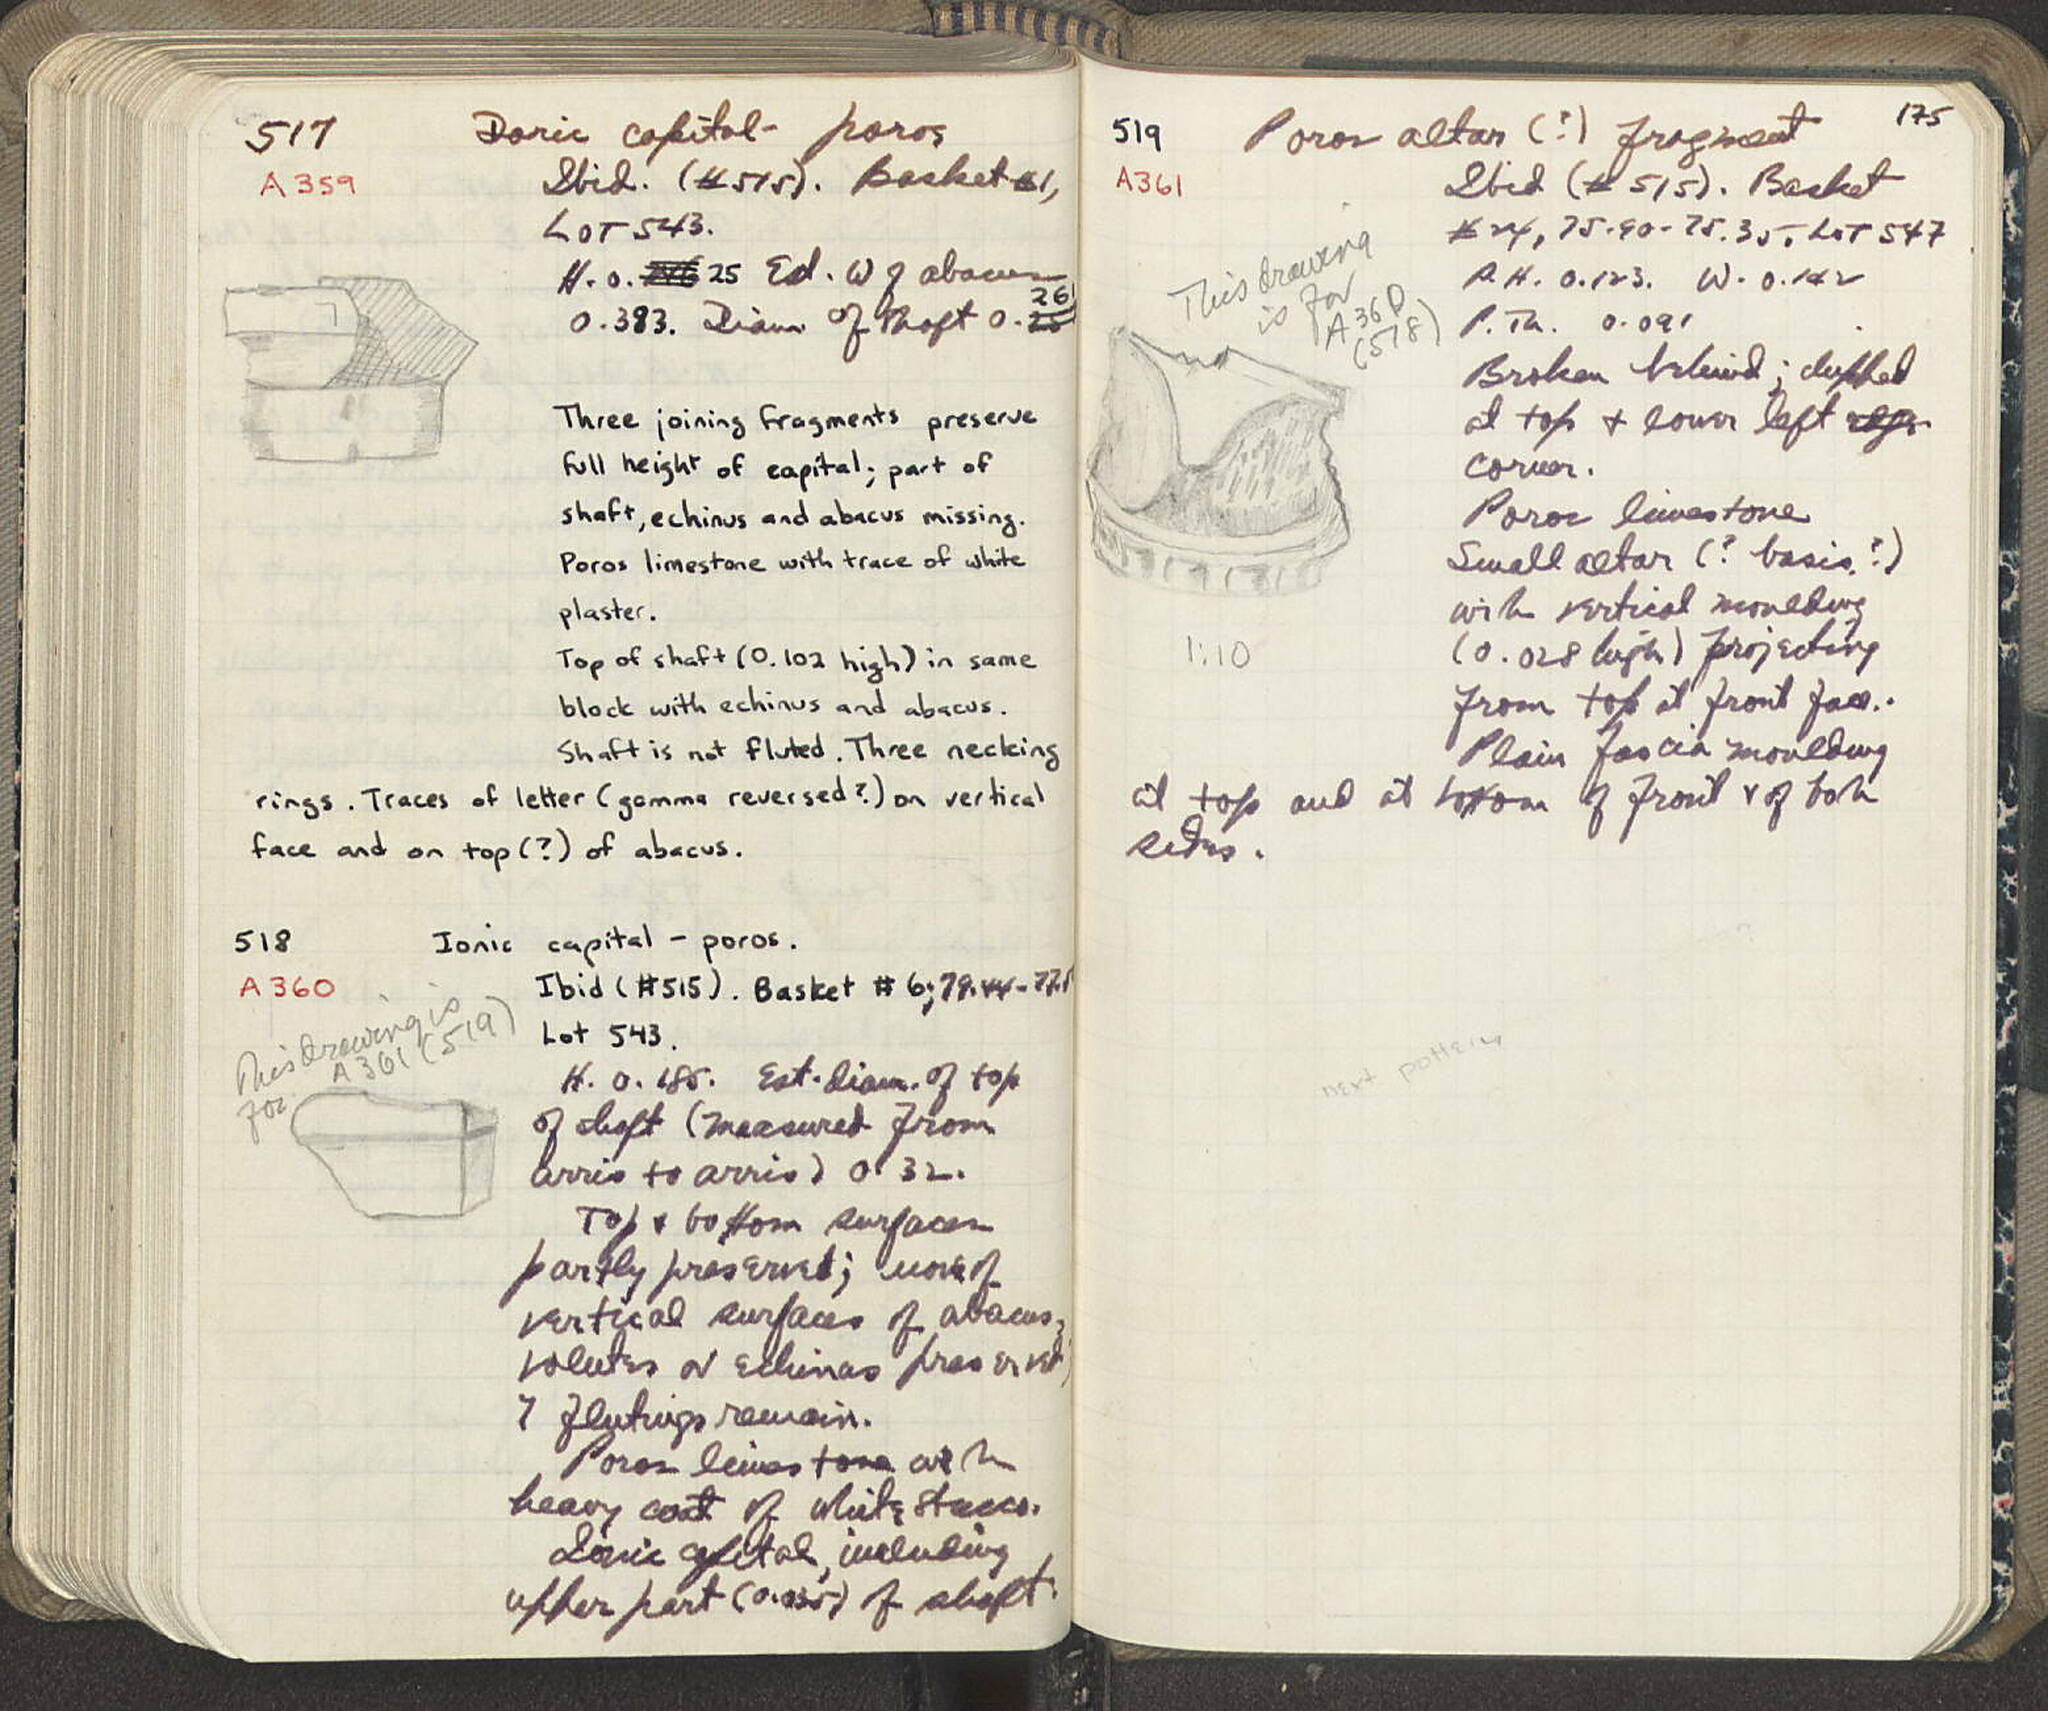 517 Doric capital - poros
A359
Ibid. (#515). Basket #1,
Lot 543.
H. 0. 25 Est. W of abacus
0.383. Diam. of shaft 0.26
Three joining fragments preserve
full height of capital; part of
shaft, echinus and abacus missing.
Poros limestone with trace of white
plaster.
Top of shaft (0.102 high) in same
block with echinus and abacus.
Shaft is not fluted. Three necking
rings. Traces of letter (gamma reversed?) on vertical
face and on top (?) of abacus.
518 Ionic capital - poros.
A360
Ibid (#515). Basket # 6;
Lot 543.
This drawing is
for A361 (519)
H. 0.185. Est. diam. of top
of shaft (measured from
arris to arris) 0.32.
Top & bottom surfaces
partly preserved; none of
vertical surfaces of abacus,
volutes or echinas preserved;
7 flutings remain.
Poros limestone with
heavy coat of white stucco.
Ionic capital, including
upper part (0.035) of shaft.
175
519 Poros altar (?) fragment
A361
Ibid (#515). Basket
#24, 75.90-75.35, Lot 547
P.H. 0.123. W. 0.142
P.Th. 0.091
This drawing
is for
A360
(518)
Broken behind; chipped
at top & lower left
corner.
Poros limestone
Small altar (? basis?)
with vertical moulding
(0.028 high) projecting
from top at front face.
Plain fascia moulding
at top and at bottom of front & of both
sides.
1:10
next pottery